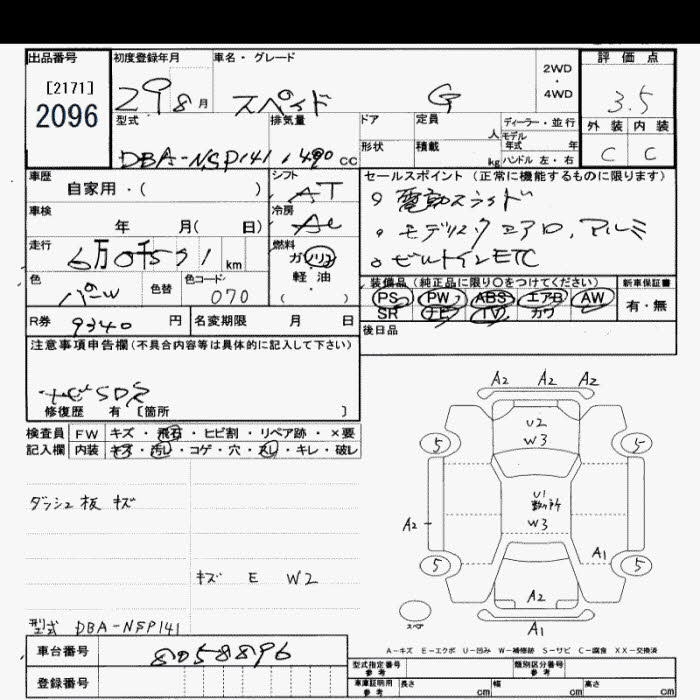 出品番号 初度登録年月 車名・グレード 評価点
[2171]
2096
29 8月 スペイド G 2WD・4WD 3.5
型式 排気量 ドア 定員 人 ディーラー・並行 外装 内装
DBA-NSP141 1,490cc 形状 積載 kg モデル年式 年 C C
ハンドル 左・右
車歴 シフト セールスポイント (正常に機能するものに限ります)
自家用・( ) AT 電動スライド
車検 冷房
年 月( 日) AC モデリスタエアロ,アルミ
走行 燃料
6万0千531 km ガソリン ビルトインETC
色 色替 色コード 軽・油
パール 070 ・( )
装備品 (純正品に限り○をつけてください) 新車保証書
PS PW ABS エアB AW 有・無
SR ナビ TV カワ
R券 9340 円 名変期限 月 日 後日品
注意事項申告欄(不具合内容等は具体的に記入して下さい)
ナビSD欠
修復歴 有 [箇所 ]
検査員 FW キズ・飛石・ヒビ割・リペア跡・×要
記入欄 内装 キズ・汚れ・コゲ・穴・スレ・キレ・破レ
ダッシュ板 キズ
キズ E W2
型式 DBA-NSP141
A2 A2 A2
U2
W3
5 5
U1
W3
A2
A1
5 5
A2
スペア
A1
A-キズ E-エクボ U-凹み W-補修跡 S-サビ C-腐食 XX-交換済
車台番号 8058896
登録番号
型式指定番号 参考 類別区分番号 参考
車庫証明用 参考 長さ cm 幅 cm 高さ cm